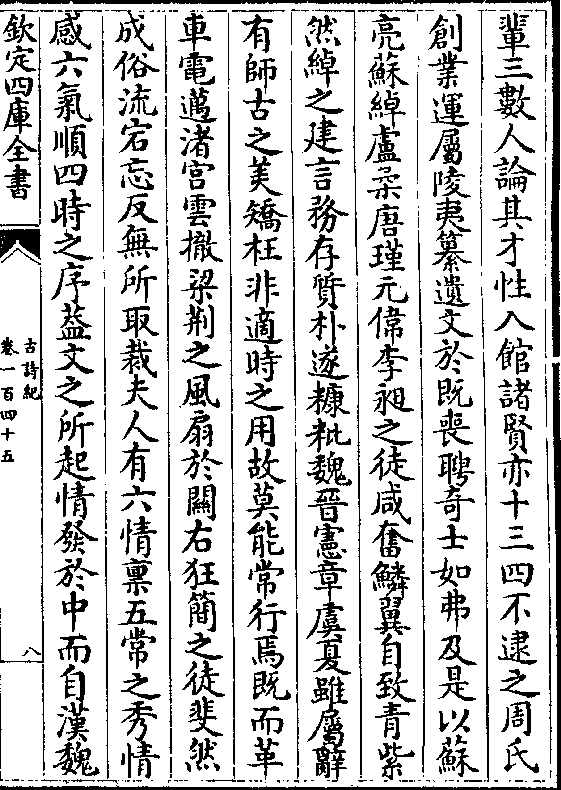 輩三數人論其才性入館諸賢亦十三四不逮之周氏
創業運屬陵夷纂遺文於既喪聘奇士如弗及是以蘇
亮蘇綽盧柔唐瑾元偉李昶之徒咸奮鱗翼自致青紫
然綽之建言務存質朴遂糠粃魏晉憲章虞夏雖屬辭
有師古之美矯枉非適時之用故莫能常行焉既而革
車電邁渚宮雲撤梁荆之風扇於關右狂簡之徒斐然
成俗流宕忘反無所取裁夫人有六情禀五常之秀情
感六氣順四時之序葢文之所起情發於中而自漢魏
欽定四庫全書
古詩紀
卷一百四十五
八